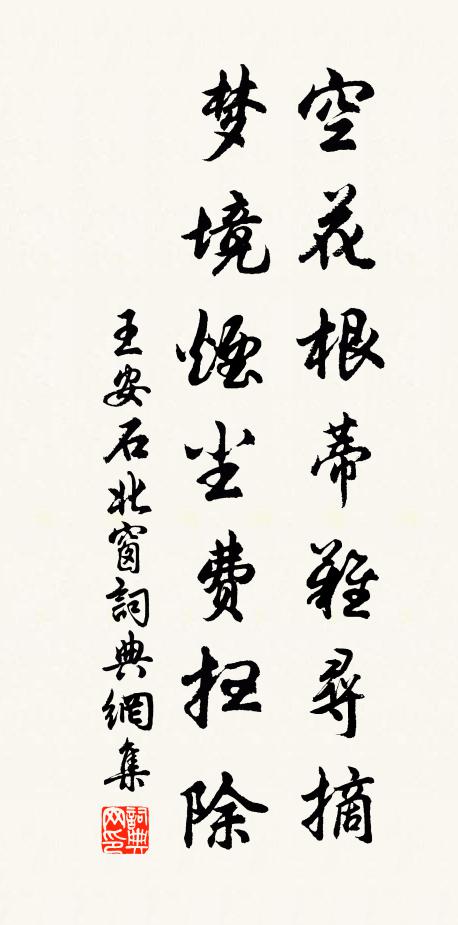 空花根蒂難尋摘
梦境煙尘费扫除
王安石北窗詞典網集
詞典网印